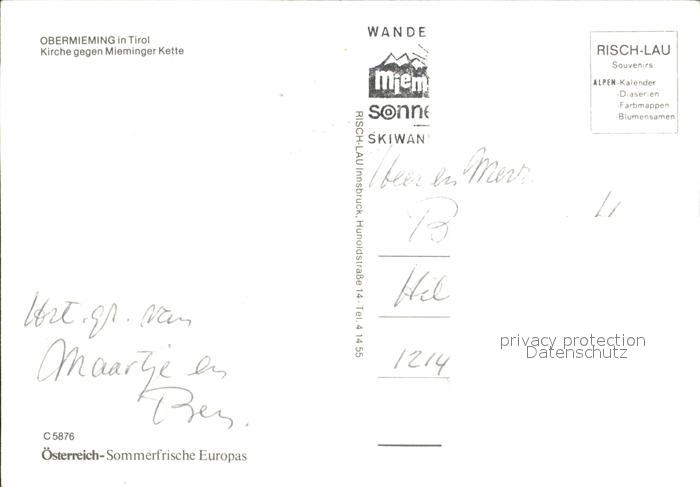 OBERMIEMING in Tirol
Kirche gegen Mieminger Kette
WANDE
miem
sonne
SKIWAN
RISCH-LAU
Souvenirs
ALPEN-Kalender
-Diaserien
-Farbmappen
-Blumensamen
RISCH-LAU Innsbruck, Hunoldstraße 14 - Tel. 4 14 55
Heer en Mevr.
B
Hil
1214
Hrt. gr. van
Maartje en
Ben.
privacy protection
Datenschutz
C 5876
Österreich-Sommerfrische Europas